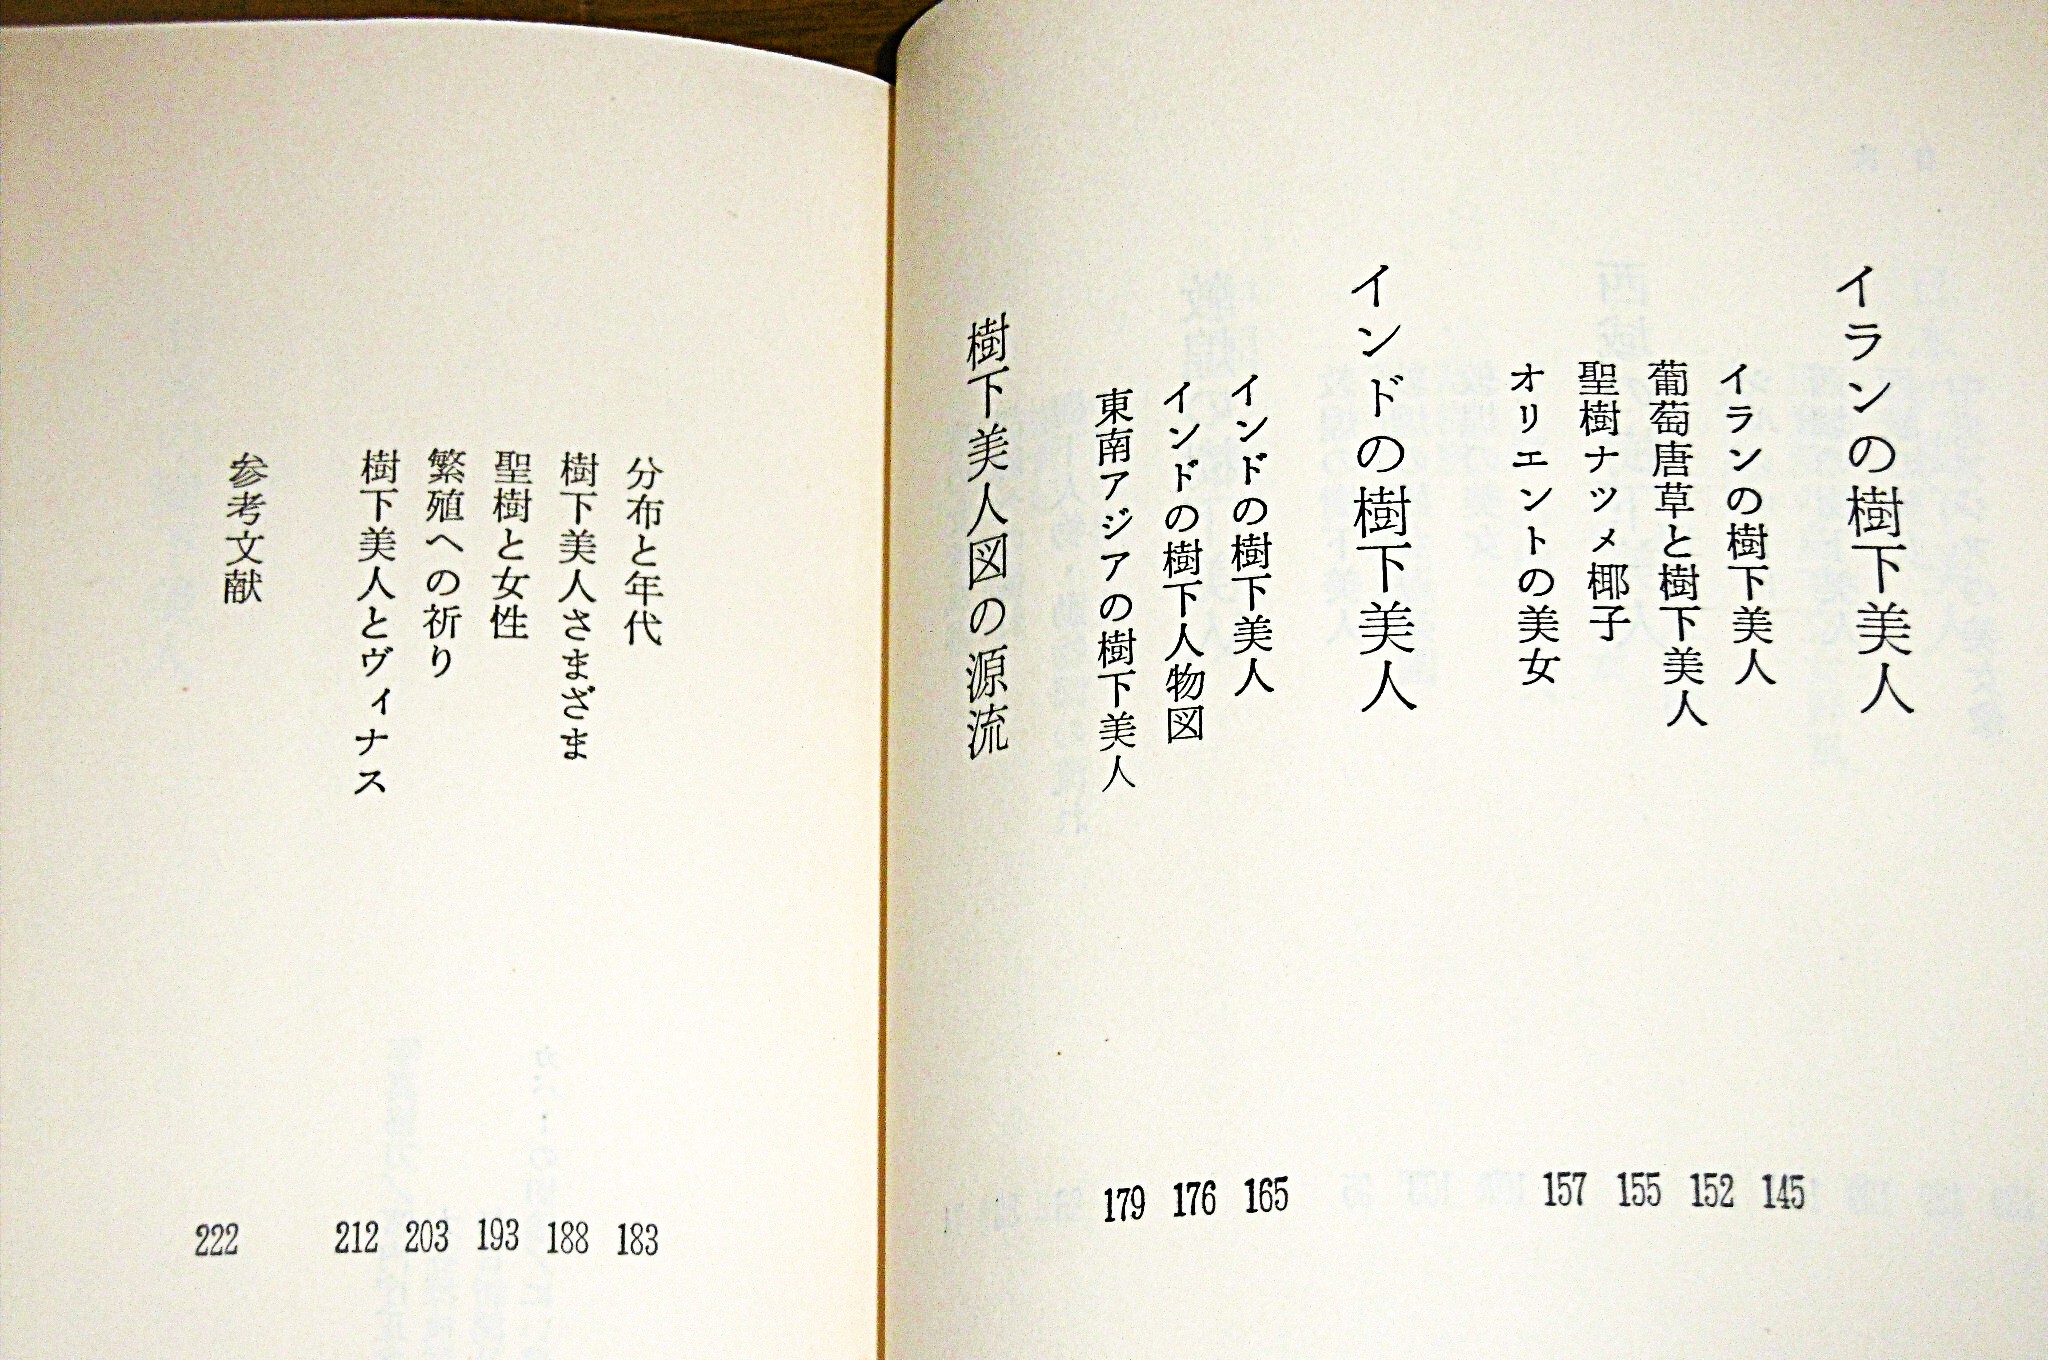 イランの樹下美人
イランの樹下美人 145
葡萄唐草と樹下美人 152
聖樹ナツメ椰子 155
オリエントの美女 157
インドの樹下美人
インドの樹下美人 165
インドの樹下人物図 176
東南アジアの樹下美人 179
樹下美人図の源流
分布と年代 183
樹下美人さまざま 188
聖樹と女性 193
繁殖への祈り 203
樹下美人とヴィナス 212
参考文献 222